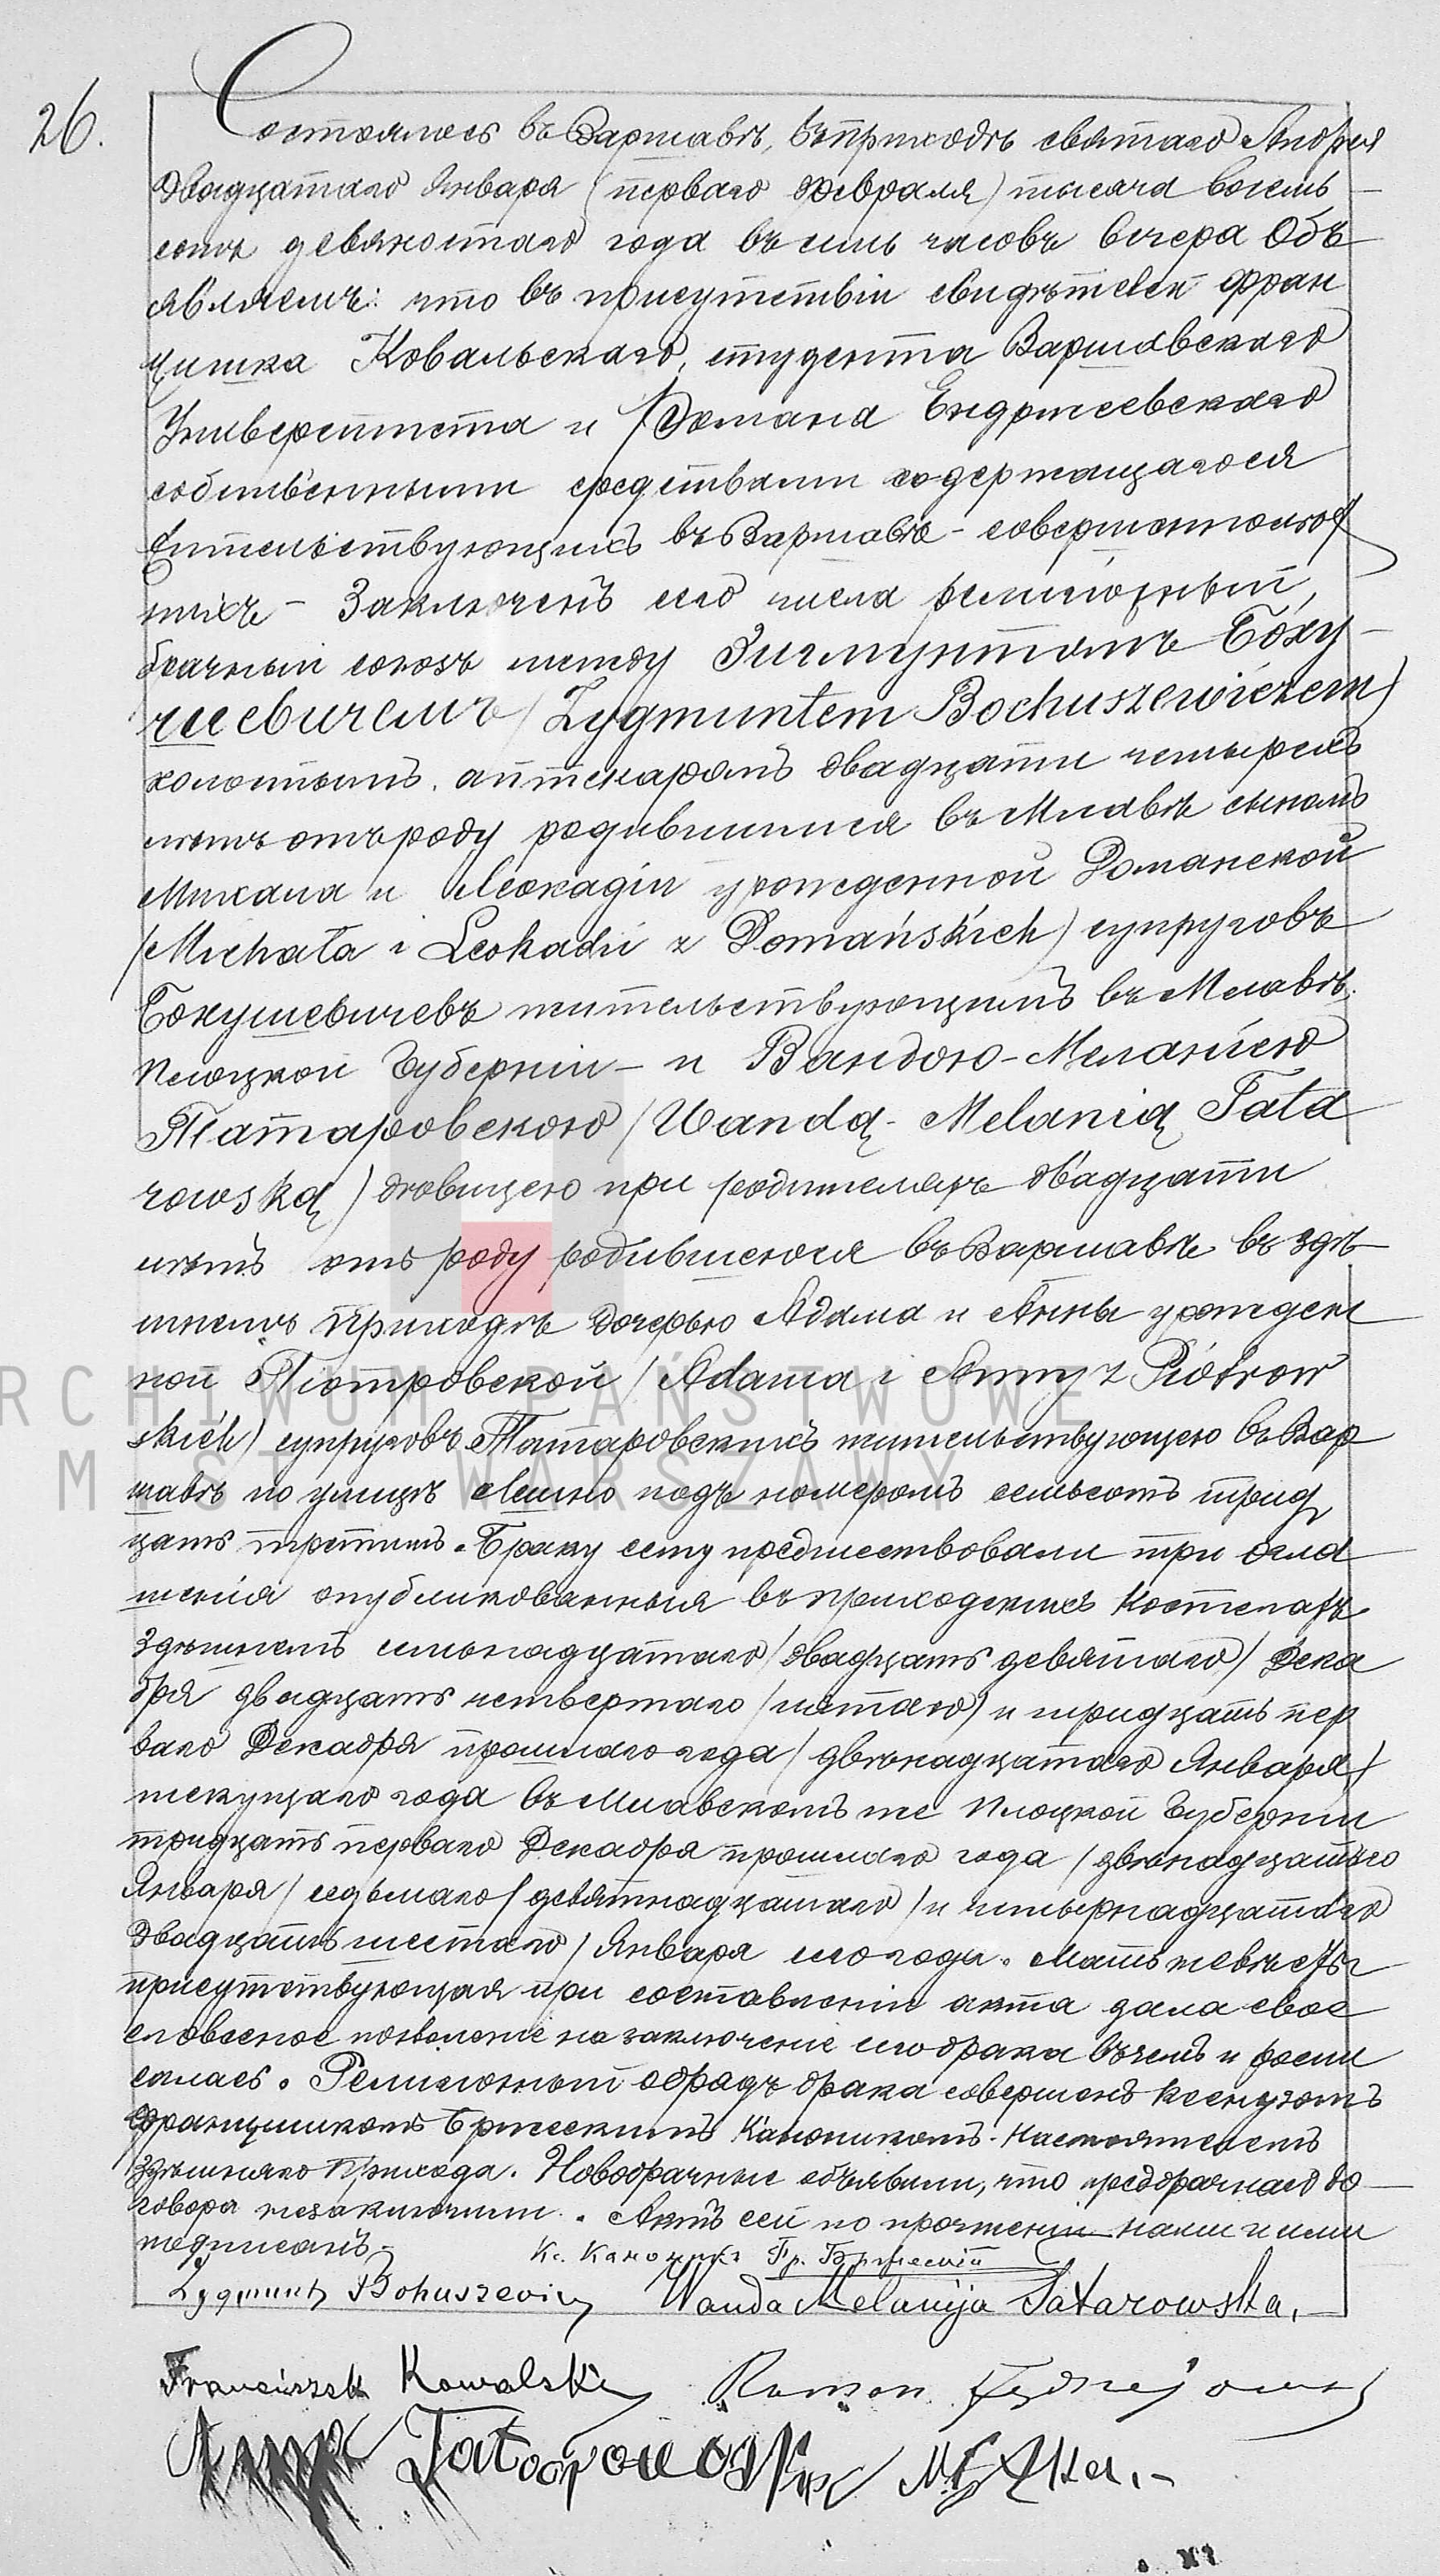 26.
Состоялось въ Варшавѣ, въ приходѣ святаго Андрея
двадцатаго Января (перваго Февраля) тысяча восемь
сотъ девяностаго года въ семь часовъ вечера Объ
являемъ: что въ присутствіи свидѣтелей Фран
цишка Ковальскаго, студента Варшавскаго
Университета и Романа Ендржеевскаго
собственными средствами содержащагося
жительствующихъ въ Варшавѣ - совершеннолѣт
нихъ - Заключенъ сего числа религіозный,
брачный союзъ между Зигмунтомъ Боху
шевичемъ (Zygmuntem Bochuszewiczem)
холостымъ, аптекаремъ двадцати четырехъ
лѣтъ отъ роду родившимся въ Млавѣ сыномъ
Михала и Леокадіи урожденной Доманской
(Michała i Leokadii z Domańskich) супруговъ
Бохушевичевъ жительствующимъ въ Млавѣ,
Плоцкой Губерніи - и Вандою-Меланіею
Татаровскою (Wandą-Melanią Tata
rowską) дѣвицею при родителяхъ двадцати
лѣтъ отъ роду родившеюся въ Варшавѣ въ здѣ
шнемъ приходѣ дочерью Адама и Анны урожден
ной Піотровской (Adama i Anny z Piotrow
skich) супруговъ Татаровскихъ жительствующею въ Вар
шавѣ по улицѣ Лешно подъ номеромъ семьсотъ трид
цать третьимъ. Браку сему предшествовали три огла
шенія опубликованныя въ приходскихъ Костелахъ
здѣшнемъ семьнадцатаго (двадцать девятаго) Дека
бря двадцать четвертаго (пятаго) и тридцать пер
ваго Декабря прошлаго года (двѣнадцатаго Января)
текущаго года въ Млавскомъ же Плоцкой Губерніи
тридцать перваго Декабря прошлаго года (двѣнадцатаго
Января) седьмаго (девятнадцатаго) и четырнадцатаго
двадцать шестаго) Января сего года. Мать невѣсты
присутствующая при составленіи акта дала свое
словесное позволеніе на заключеніе сего брака въ чемъ и росписа
салась. Религіозный обрядъ брака совершенъ Ксендзомъ
Францишкомъ Бржескимъ Каноникомъ-Настоятелемъ
здѣшняго прихода. Новобрачные объявили, что предбрачнаго до
говора незаключили. Актъ сей по прочтеніи нами и ими
подписанъ.
Кс. Каноникъ Фр. Бржескій
Zygmunt Bohuszewicz Wanda Melanija Tatarowska,
Franciszek Kowalski Roman Jędrzejowski
Anna Tatarowska Matka.-
ARCHIWUM PAŃSTWOWE
M. ST. WARSZAWY